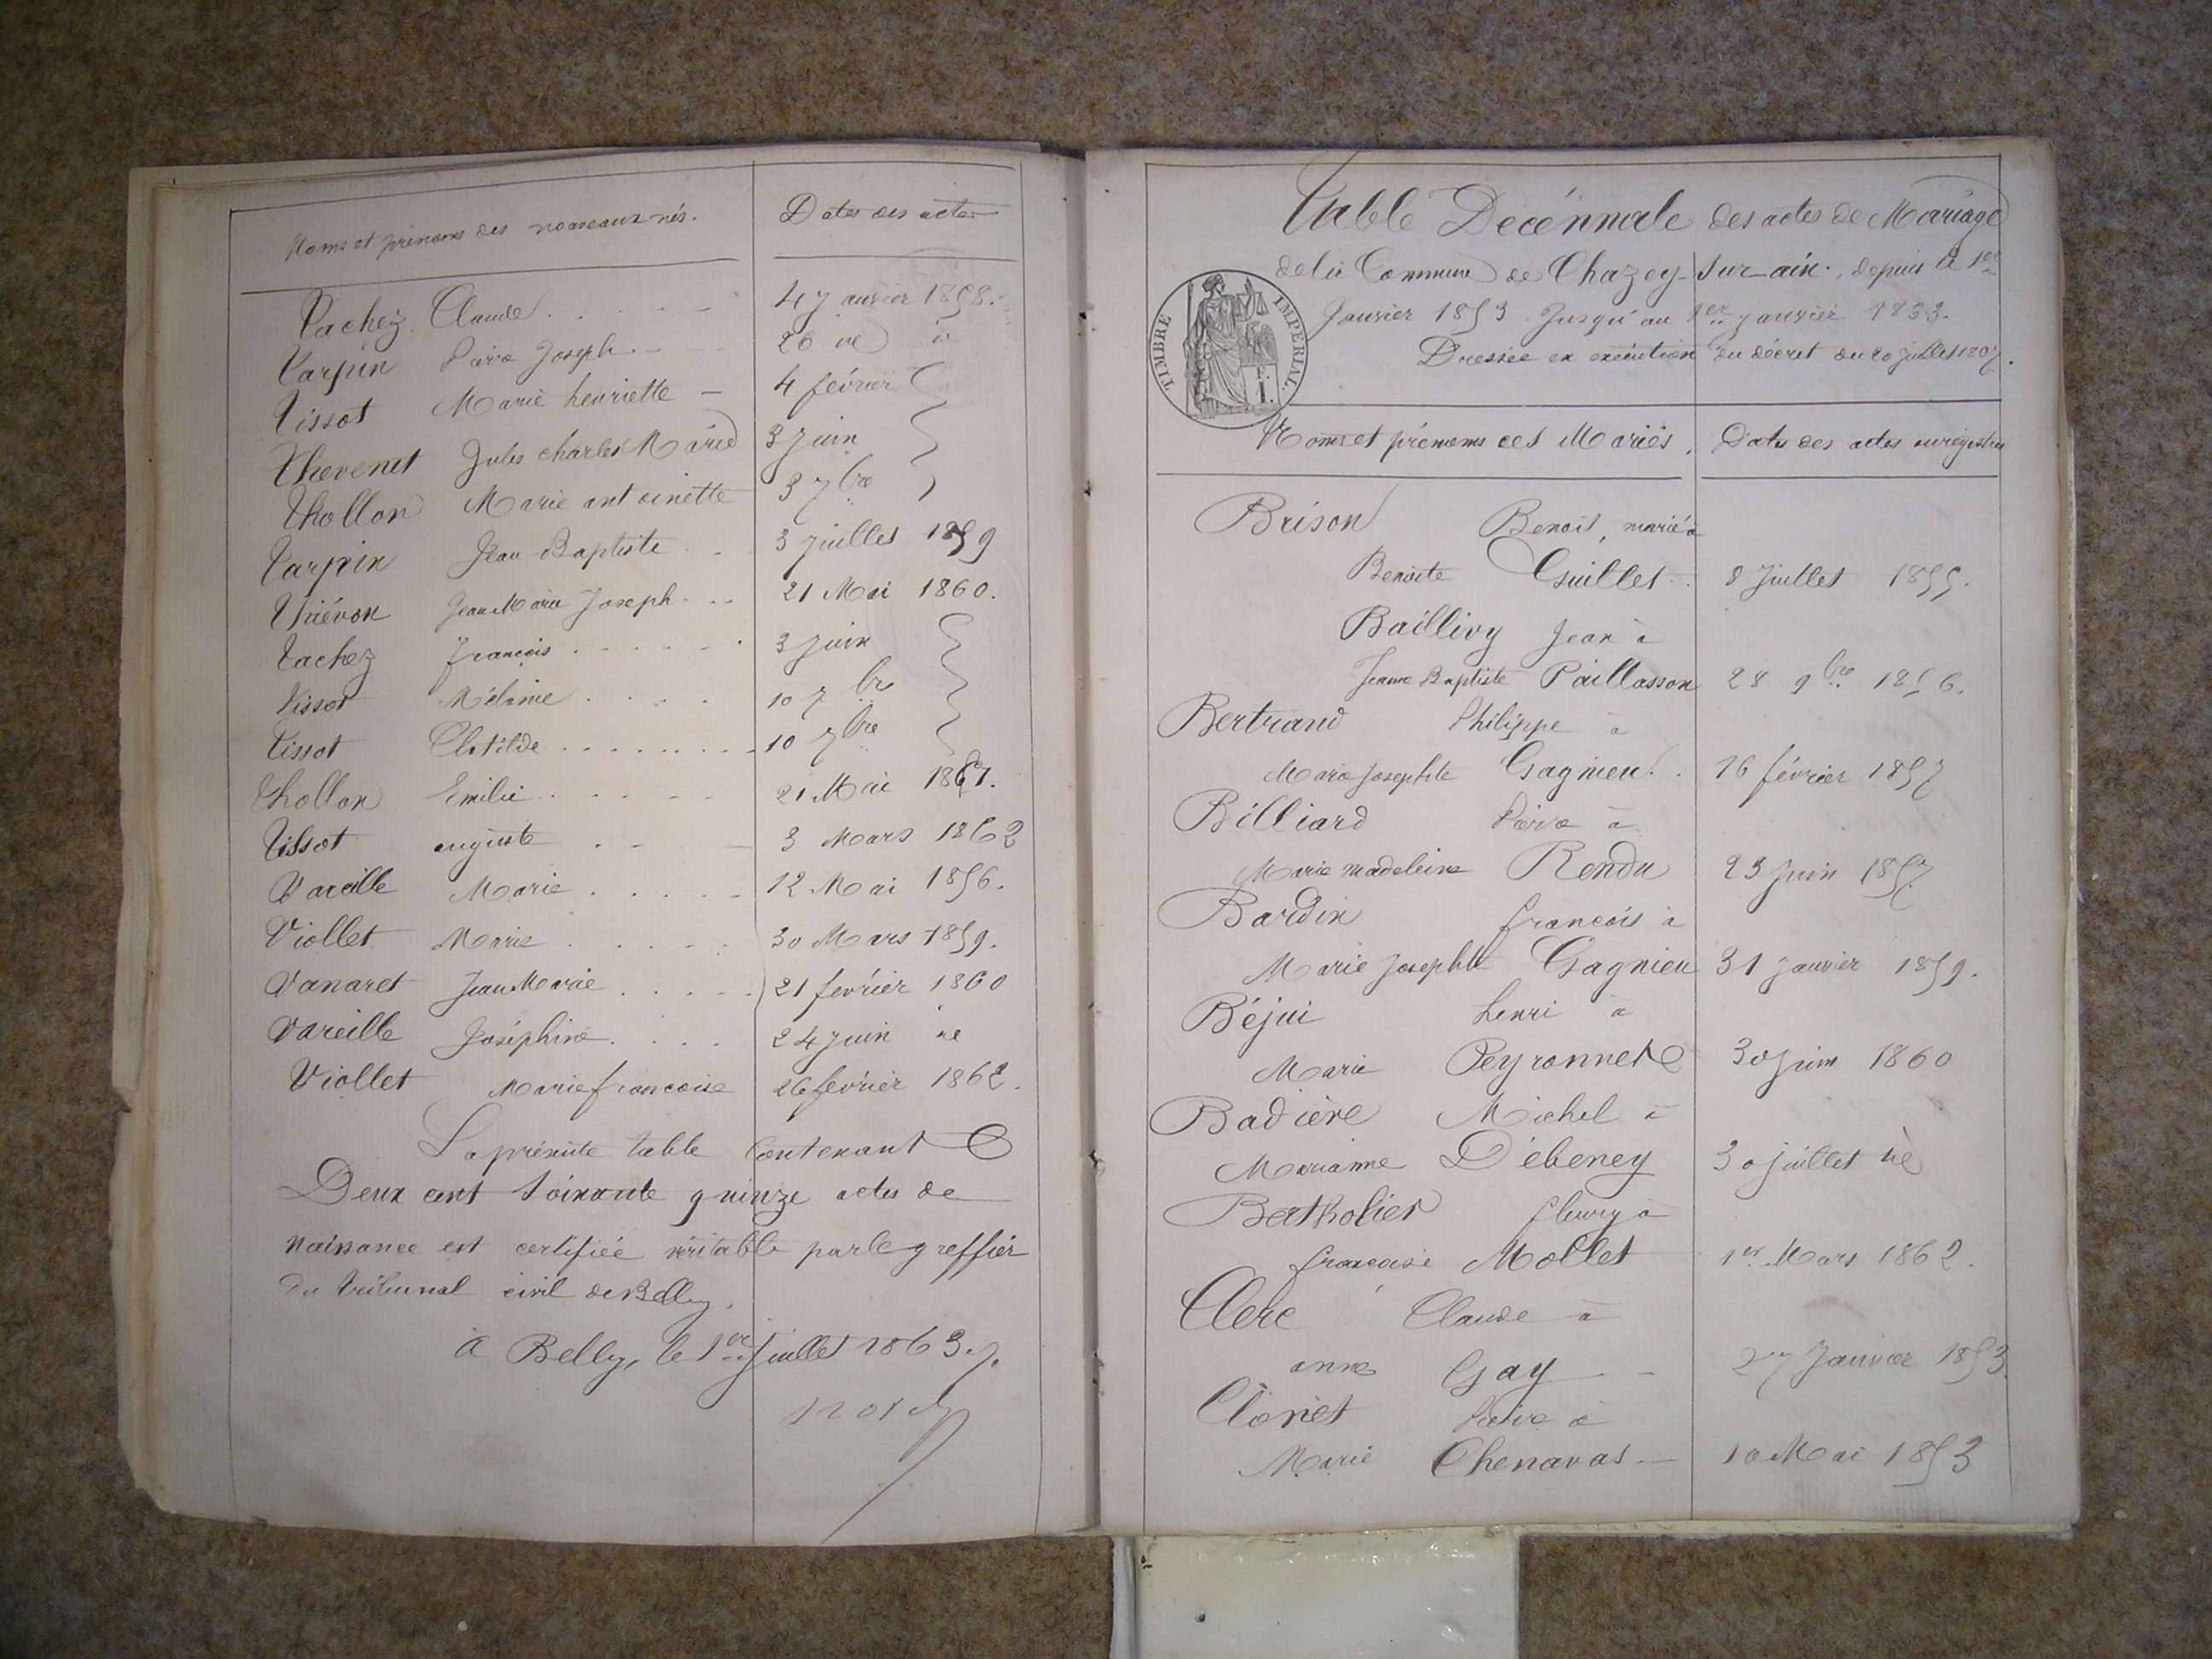 Noms et prénoms des nouveaux nés. Dates des actes
Tachez Claude 4 Janvier 1858.
Tarpin Pierre Joseph 26 id id
Tissot Marie henriette 4 février
Thevenet Jules charles Marie 3 Juin
Thollon Marie antoinette 3 7bre
Tarpin Jean Baptiste 3 Juillet 1859
Thiévon Jean Marie Joseph 21 Mai 1860.
Tachez françois 3 Juin
Tissot Mélanie 10 7bre
Tissot Clotilde 10 7bre
Thollon Emilie 21 Mai 1861.
Tissot auguste 3 Mars 1862
Vareille Marie 12 Mai 1856.
Viollet Marie 30 Mars 1859.
Vanaret Jean Marie 21 février 1860
Vareille Joséphine 24 Juin id
Viollet Marie françoise 26 février 1862.
La présente table Contenant
Deux cent Soixante quinze actes de
naissance est certifiée véritable par le greffier
du tribunal civil de Belley.
à Belley, le 1er Juillet 1863.
Table Décénnale des actes de Mariage
de la Commune de Chazey-Sur-ain, depuis le 1er
Janvier 1853 Jusqu'au 1er Janvier 1863.
Dressée en exécution du décret du 20 juillet 1807.
TIMBRE IMPERIAL.
Noms et prénoms des Mariés. Dates des actes enregistrés
Brison Benoit, marié à
Benoite Guillet 8 Juillet 1855.
Baillivy Jean à
Jeanne Baptiste Paillasson 28 9bre 1856.
Bertrand Philippe à
Marie Josephte Gagnieu 16 février 1857
Billiard Pierre à
Marie Madeleine Rendu 23 Juin 1857
Bardin françois à
Marie Josephte Gagnieu 31 Janvier 1859.
Béjui henri à
Marie Peyronnet 30 Juin 1860
Badière Michel à
Marianne Débeney 30 Juillet id
Bertholier fleury à
françoise Mollet 1er Mars 1862.
Clerc Claude à
anne Gay 27 Janvier 1853.
Clonet Pierre à
Marie Chenavas 10 Mai 1853